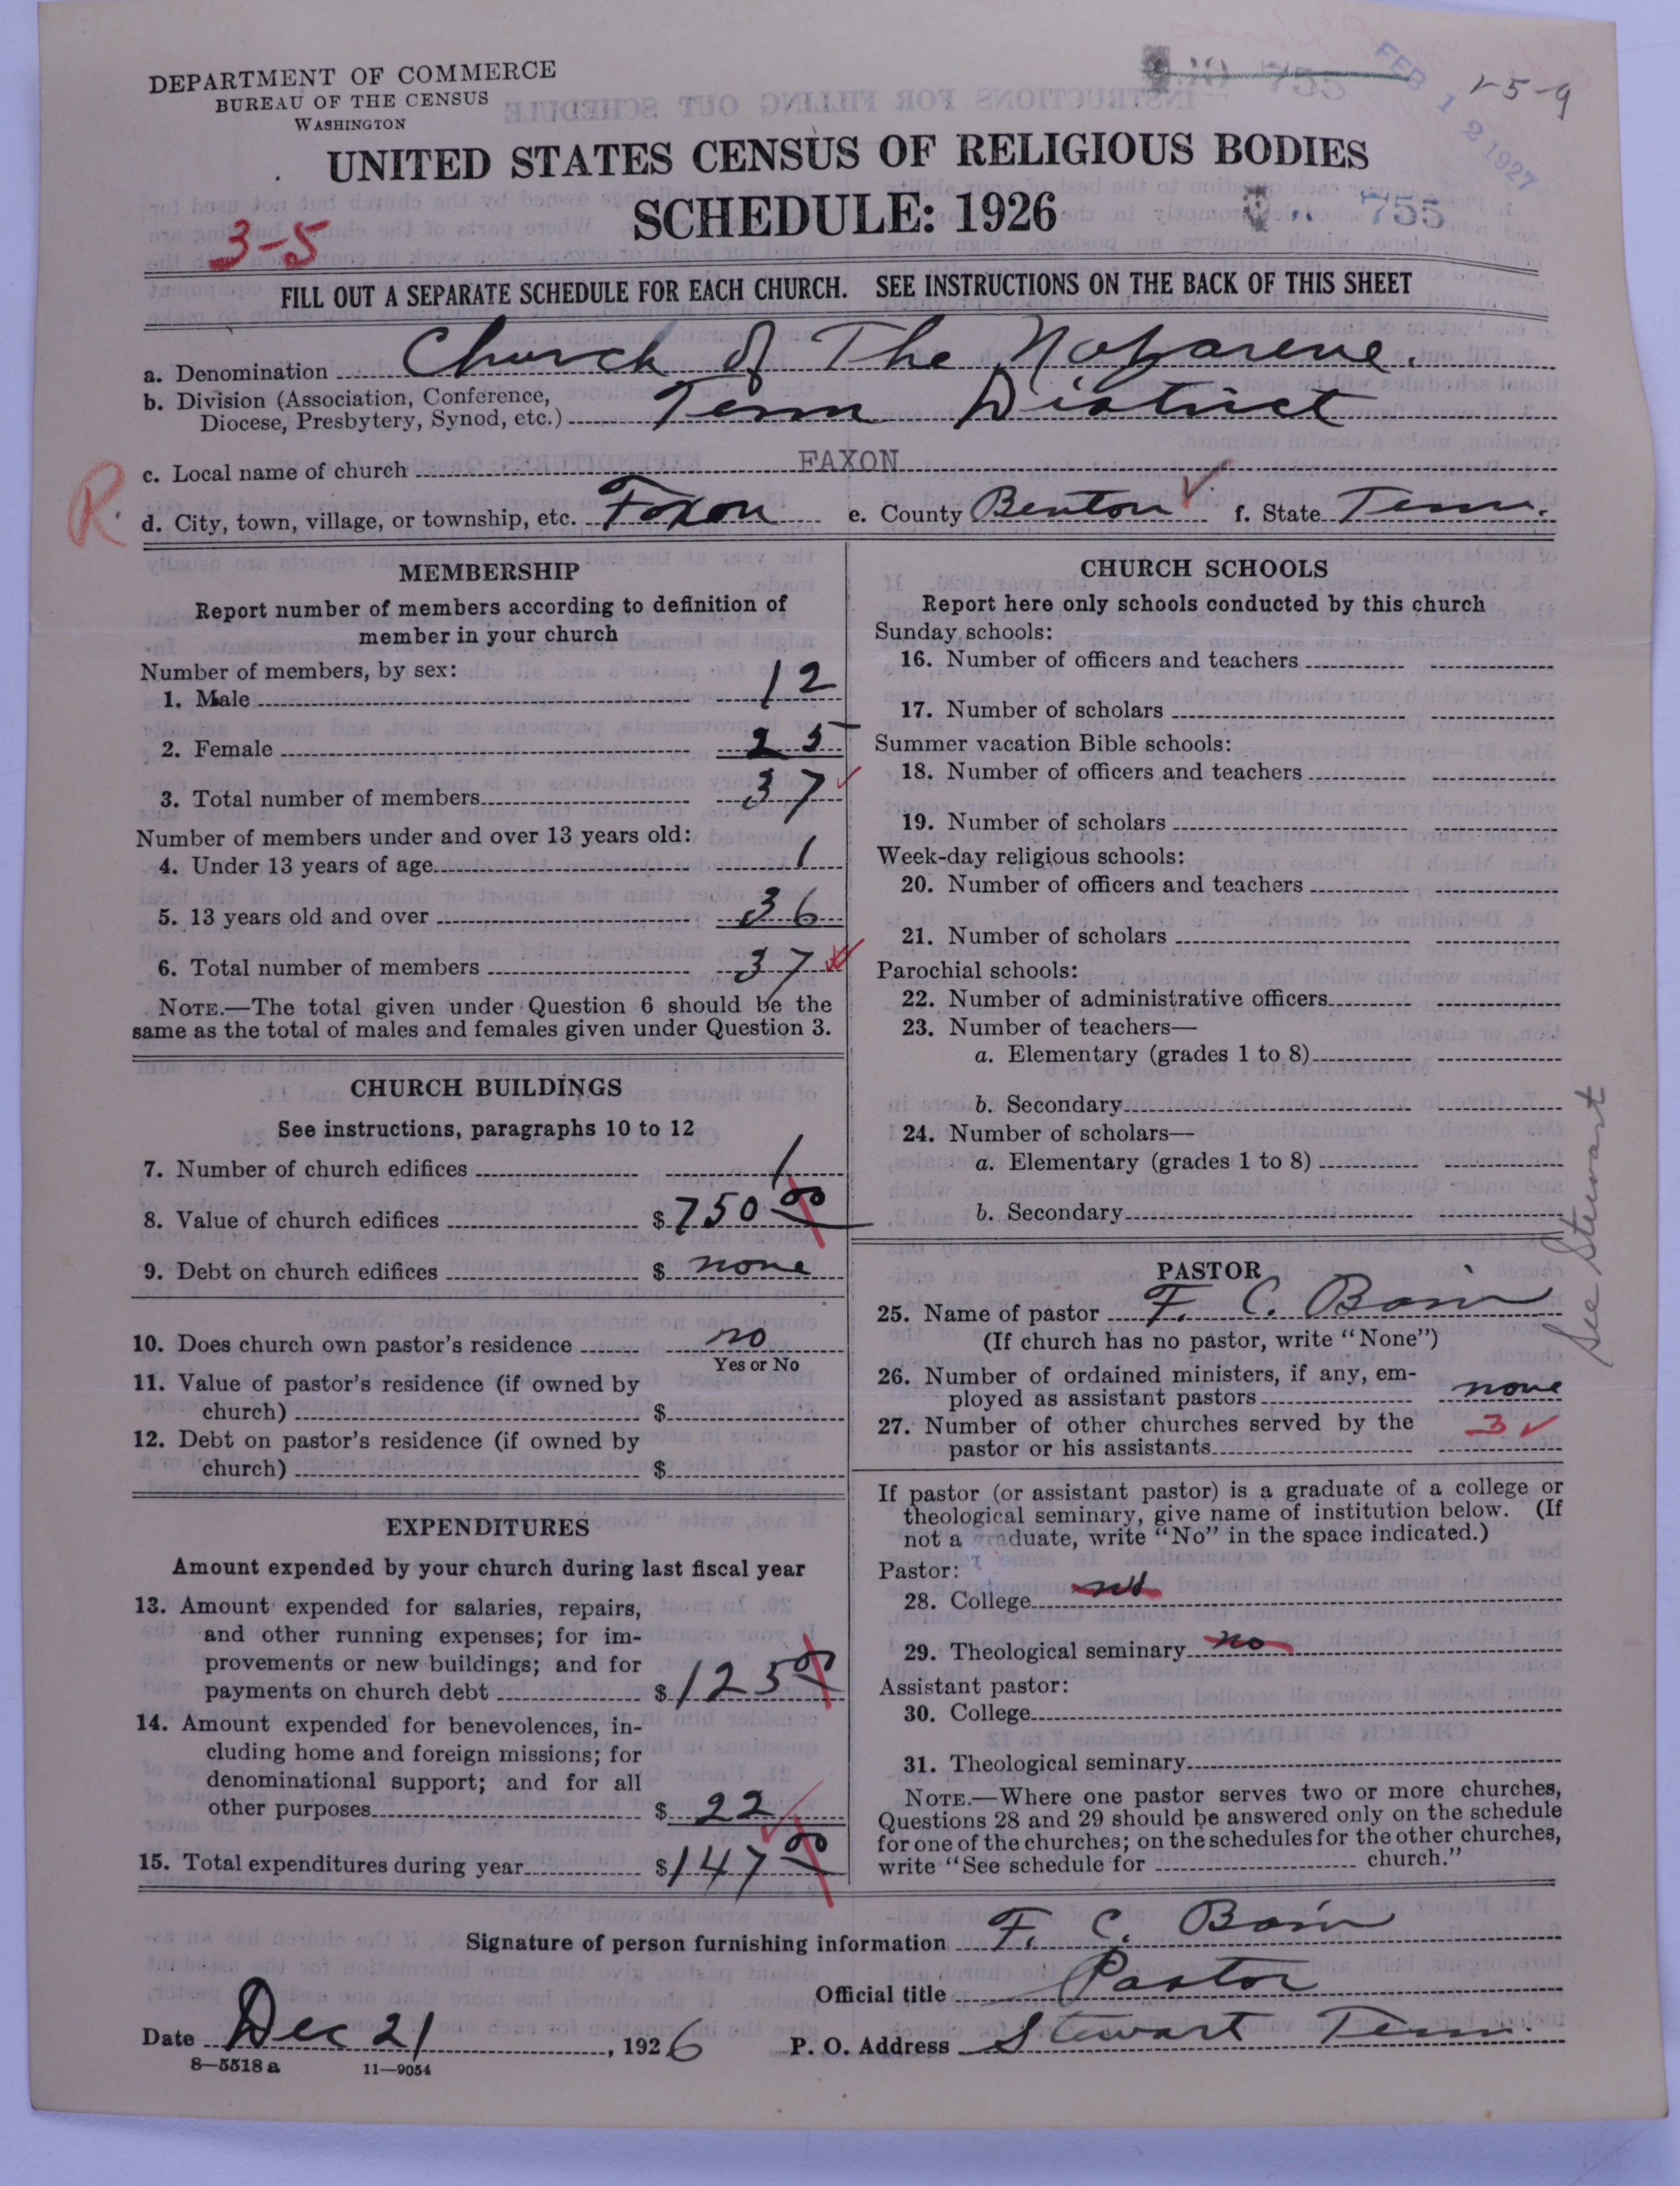 DEPARTMENT OF COMMERCE
BUREAU OF THE CENSUS
WASHINGTON
FEB 12 1927
UNITED STATES CENSUS OF RELIGIOUS BODIES
SCHEDULE: 1926
755
3-5
FILL OUT A SEPARATE SCHEDULE FOR EACH CHURCH. SEE INSTRUCTIONS ON THE BACK OF THIS SHEET
a. Denomination Church of The Nazarene.
b. Division (Association, Conference,
Diocese, Presbytery, Synod, etc.) Tenn District
c. Local name of church FAXON
R.
d. City, town, village, or township, etc. Faxon e. County Benton ✓ f. State Tenn.
MEMBERSHIP
Report number of members according to definition of
member in your church
Number of members, by sex:
1. Male 12
2. Female 25
3. Total number of members 37 ✓
Number of members under and over 13 years old:
4. Under 13 years of age 1
5. 13 years old and over 36
6. Total number of members 37
NOTE.—The total given under Question 6 should be the
same as the total of males and females given under Question 3.
CHURCH BUILDINGS
See instructions, paragraphs 10 to 12
7. Number of church edifices 1
8. Value of church edifices $ 750 00
9. Debt on church edifices $ none
10. Does church own pastor's residence no
Yes or No
11. Value of pastor's residence (if owned by
church) $
12. Debt on pastor's residence (if owned by
church) $
EXPENDITURES
Amount expended by your church during last fiscal year
13. Amount expended for salaries, repairs,
and other running expenses; for im-
provements or new buildings; and for
payments on church debt $ 125 00
14. Amount expended for benevolences, in-
cluding home and foreign missions; for
denominational support; and for all
other purposes $ 22 ✓
15. Total expenditures during year $ 147 00
CHURCH SCHOOLS
Report here only schools conducted by this church
Sunday schools:
16. Number of officers and teachers
17. Number of scholars
Summer vacation Bible schools:
18. Number of officers and teachers
19. Number of scholars
Week-day religious schools:
20. Number of officers and teachers
21. Number of scholars
Parochial schools:
22. Number of administrative officers
23. Number of teachers—
a. Elementary (grades 1 to 8)
b. Secondary
24. Number of scholars—
a. Elementary (grades 1 to 8)
b. Secondary
See Stewart
PASTOR
25. Name of pastor F. C. Bain
(If church has no pastor, write "None")
26. Number of ordained ministers, if any, em-
ployed as assistant pastors none
27. Number of other churches served by the
pastor or his assistants 3 ✓
If pastor (or assistant pastor) is a graduate of a college or
theological seminary, give name of institution below. (If
not a graduate, write "No" in the space indicated.)
Pastor:
28. College
29. Theological seminary no
Assistant pastor:
30. College
31. Theological seminary
NOTE.—Where one pastor serves two or more churches,
Questions 28 and 29 should be answered only on the schedule
for one of the churches; on the schedules for the other churches,
write "See schedule for church."
Signature of person furnishing information F. C. Bain
Official title Pastor
Date Dec 21, 1926 P. O. Address Stewart Tenn.
8—5518 a 11—9054